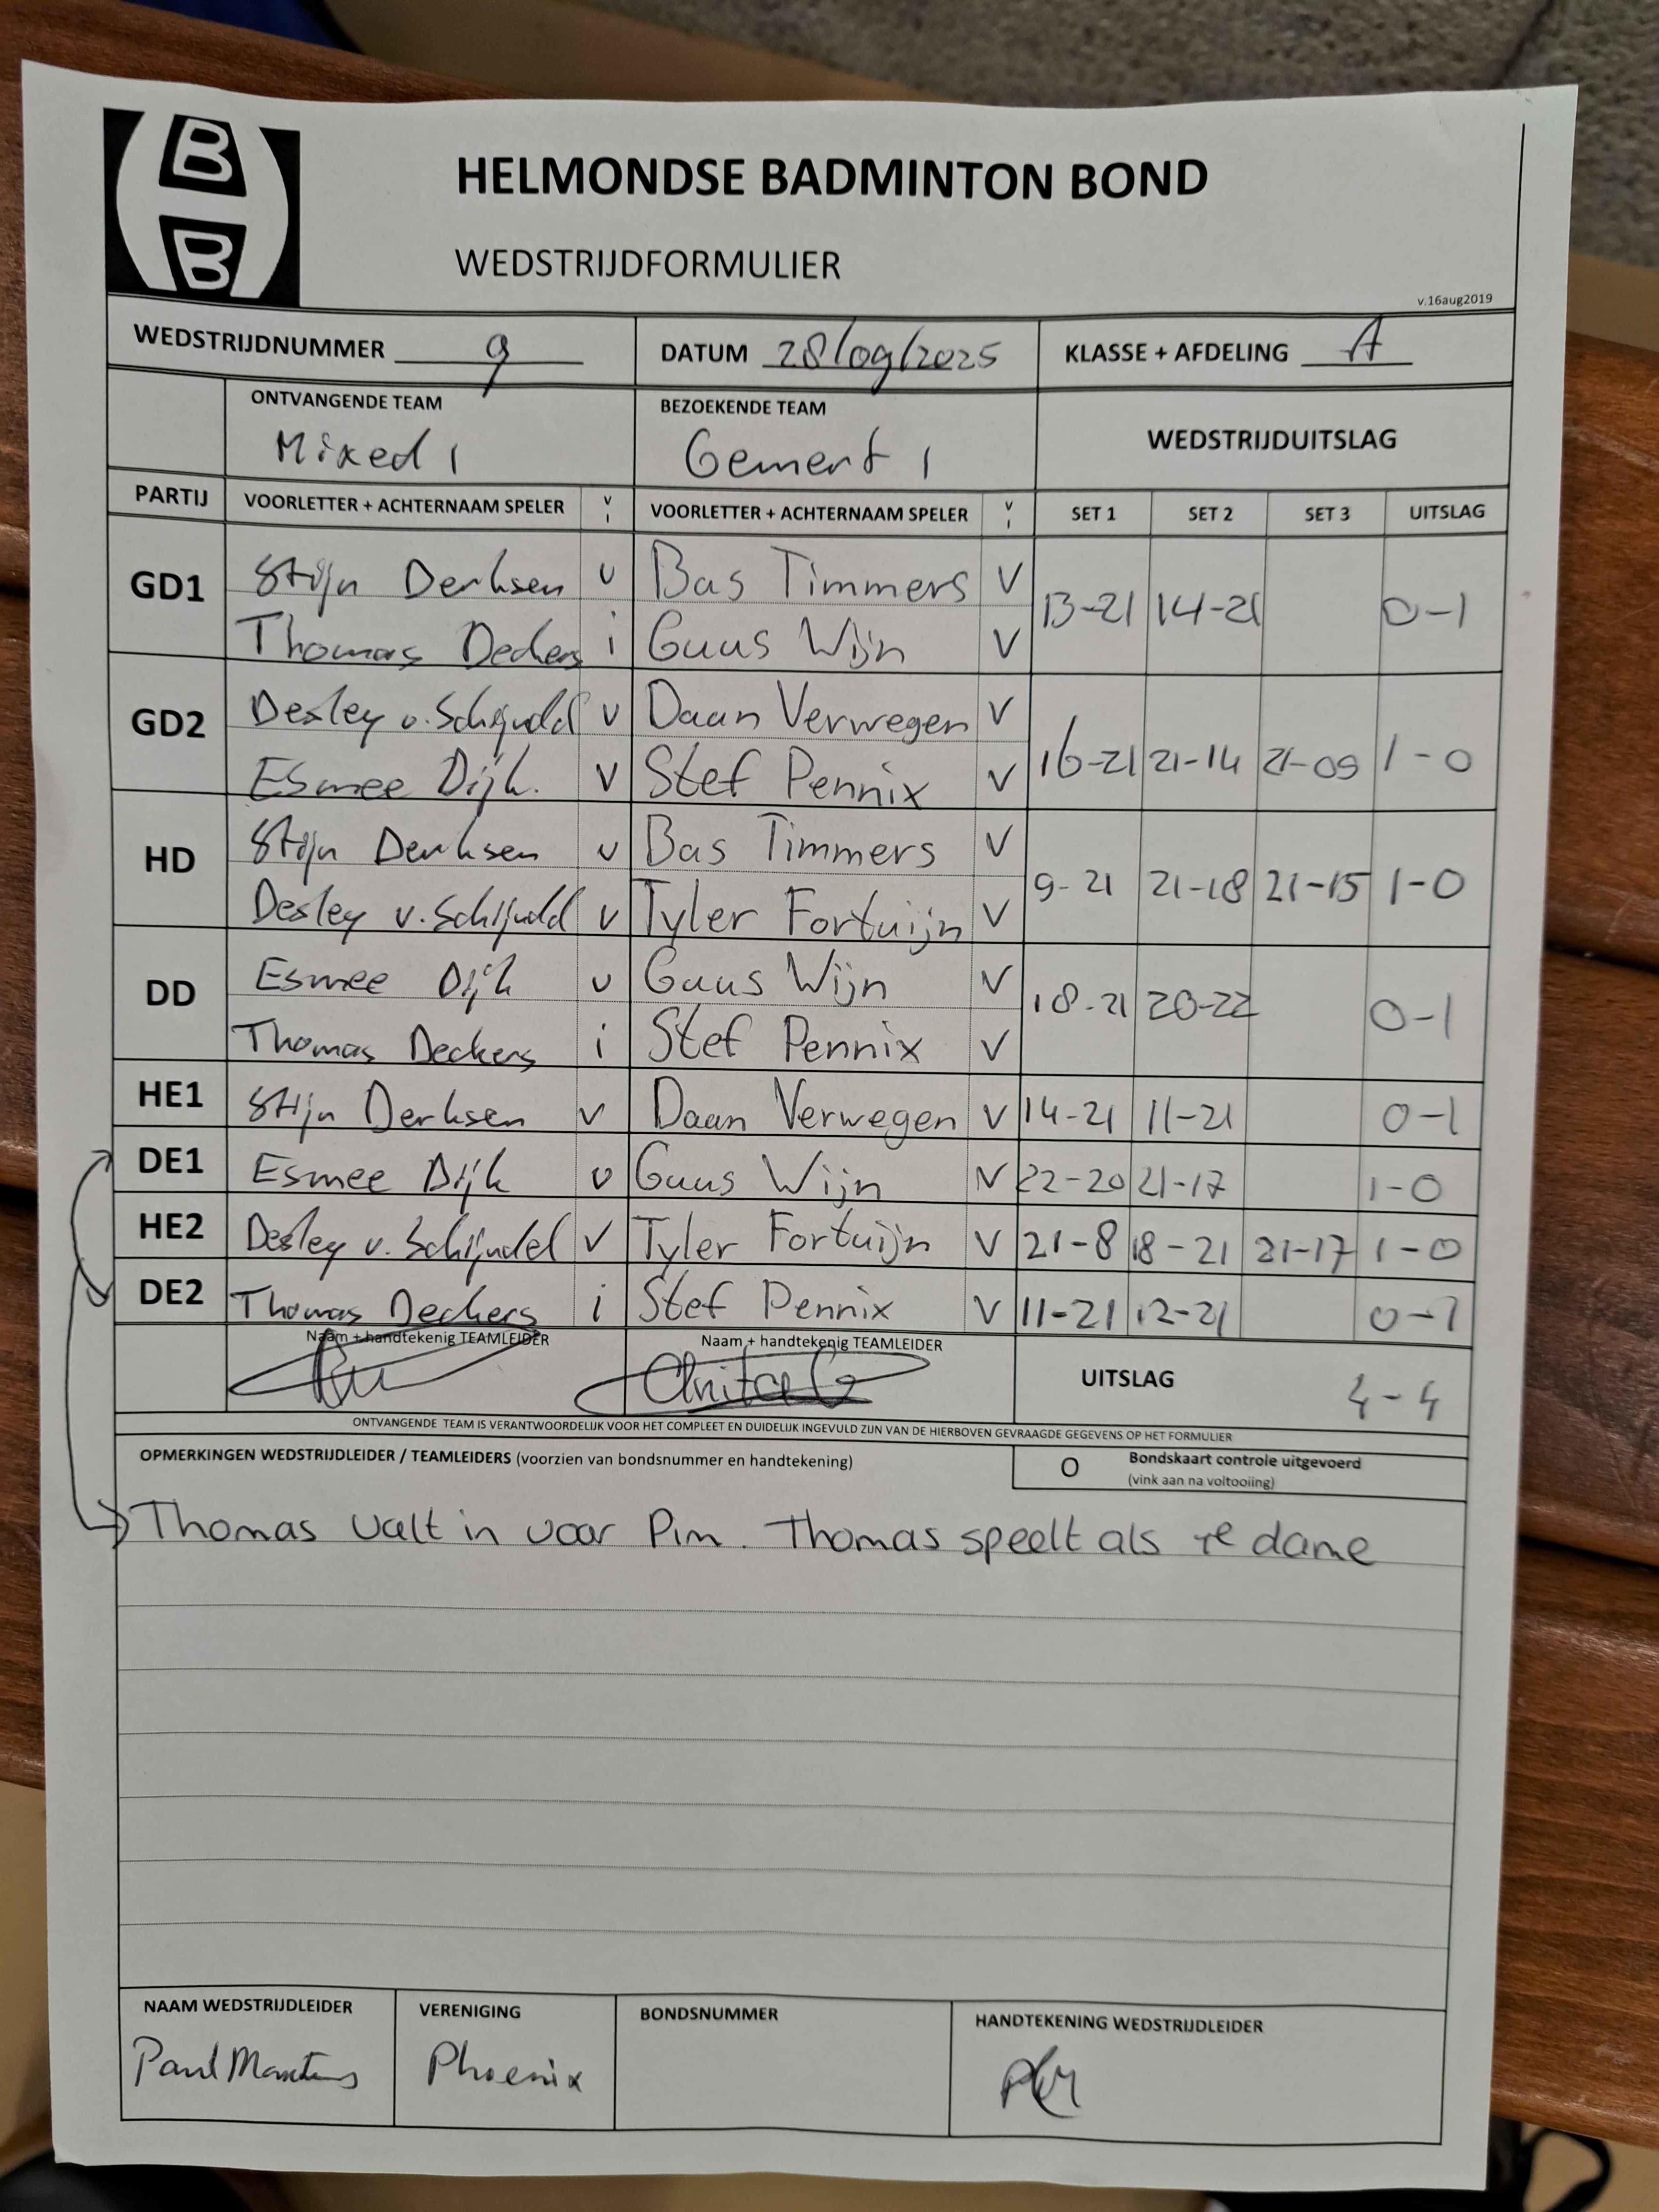 B
B
HELMONDSE BADMINTON BOND
WEDSTRIJDFORMULIER
v.16aug2019
WEDSTRIJDNUMMER 9 DATUM 28/09/2025 KLASSE + AFDELING A
ONTVANGENDE TEAM BEZOEKENDE TEAM WEDSTRIJDUITSLAG
Mixed 1 Gemert 1
PARTIJ VOORLETTER + ACHTERNAAM SPELER V I VOORLETTER + ACHTERNAAM SPELER V I SET 1 SET 2 SET 3 UITSLAG
GD1 Stijn Derksen v Bas Timmers V 13-21 14-21 0-1
Thomas Deckers i Guus Wijn V
GD2 Desley v. Schijndel v Daan Verwegen V 16-21 21-14 21-09 1-0
Esmee Dijk. V Stef Pennix V
HD Stijn Derksen v Bas Timmers V 9-21 21-18 21-15 1-0
Desley v. Schijndel v Tyler Fortuijn V
DD Esmee Dijk v Guus Wijn V 18-21 20-22 0-1
Thomas Deckers i Stef Pennix V
HE1 Stijn Derksen v Daan Verwegen V 14-21 11-21 0-1
DE1 Esmee Dijk v Guus Wijn V 22-20 21-17 1-0
HE2 Desley v. Schijndel V Tyler Fortuijn V 21-8 18-21 21-17 1-0
DE2 Thomas Deckers i Stef Pennix V 11-21 12-21 0-1
Naam + handtekenig TEAMLEIDER Naam + handtekenig TEAMLEIDER
UITSLAG 4-4
ONTVANGENDE TEAM IS VERANTWOORDELIJK VOOR HET COMPLEET EN DUIDELIJK INGEVULD ZIJN VAN DE HIERBOVEN GEVRAAGDE GEGEVENS OP HET FORMULIER
OPMERKINGEN WEDSTRIJDLEIDER / TEAMLEIDERS (voorzien van bondsnummer en handtekening) O Bondskaart controle uitgevoerd
(vink aan na voltooiing)
Thomas valt in voor Pim. Thomas speelt als dame
NAAM WEDSTRIJDLEIDER VERENIGING BONDSNUMMER HANDTEKENING WEDSTRIJDLEIDER
Paul Phoenix